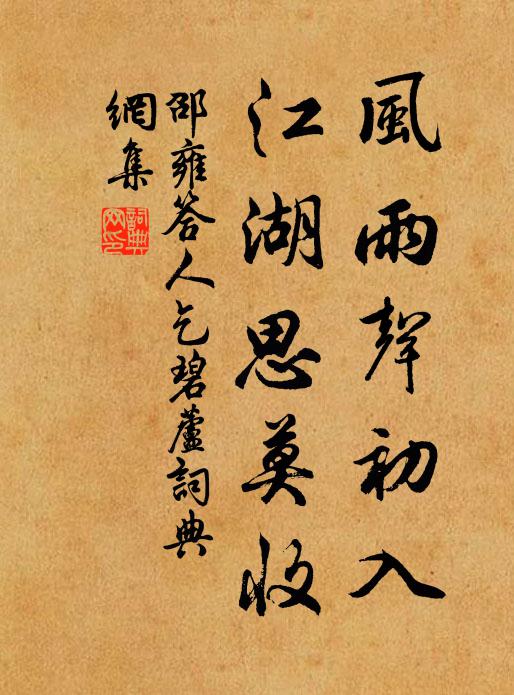 風雨聲初入
江湖思莫收
邵雍答人乞碧蘆詞典
網集
詞典
網印